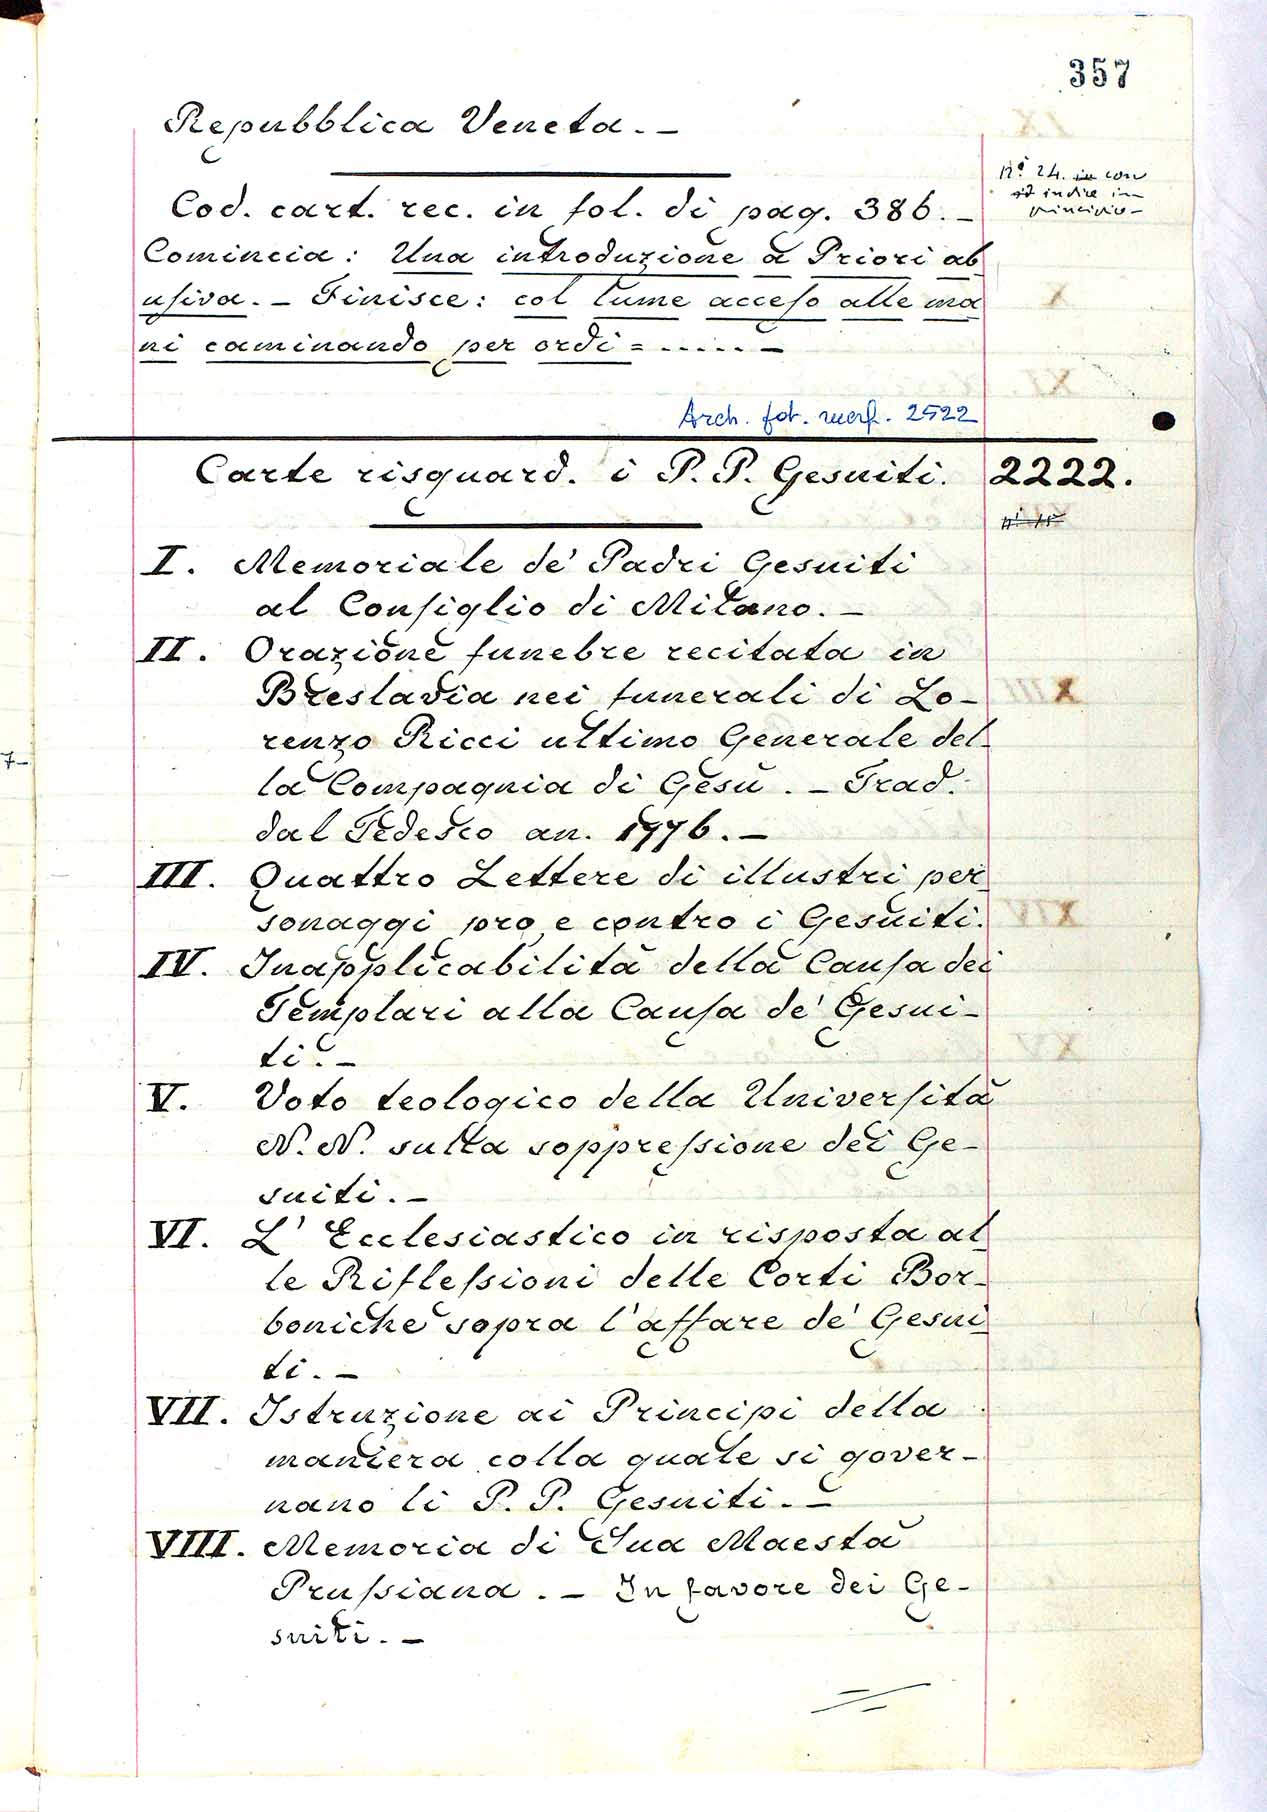 357
Repubblica Veneta. —
Nº 24. in con
indice in
principio —
Cod. cart. rec. in fol. di pag. 386. —
Comincia: Una introduzione a Priori ab
usiva. — Finisce: col lume acceso alle ma
ni caminando per ordi = ..... —
Arch. fot. marf. 2522
Carte risguard. i P. P. Gesuiti. 2222.
nº 15
I. Memoriale de' Padri Gesuiti
al Consiglio di Milano. —
II. Orazione funebre recitata in
Breslavia nei funerali di Lo-
renzo Ricci ultimo Generale del-
la Compagnia di Gesù. — Trad.
dal Tedesco an. 1776. —
III. Quattro Lettere di illustri per
sonaggi pro e contro i Gesuiti.
IV. Inapplicabilità della Causa dei
Templari alla Causa de' Gesui-
ti. —
V. Voto teologico della Università
N. N. sulla soppressione dei Ge-
suiti. —
VI. L' Ecclesiastico in risposta al
le Riflessioni delle Corti Bor-
boniche sopra l'affare de' Gesui
ti. —
7—
VII. Istruzione ai Principi della
maniera colla quale si gover-
nano li P. P. Gesuiti. —
VIII. Memoria di Sua Maestà
Prussiana. — In favore dei Ge-
suiti. —